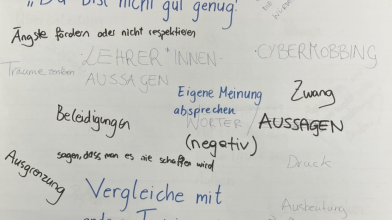 „Du bist nicht gut genug"
Ängste fördern oder nicht respektieren
·LEHRER*INNEN-
AUSSAGEN
·CYBERMOBBING
Träume
Eigene Meinung
absprechen
Zwang
Beleidigungen
WÖRTER/
AUSSAGEN
(negativ)
sagen, dass man es nie schaffen wird
Druck
Ausgrenzung
Vergleiche mit
Ausbeutung